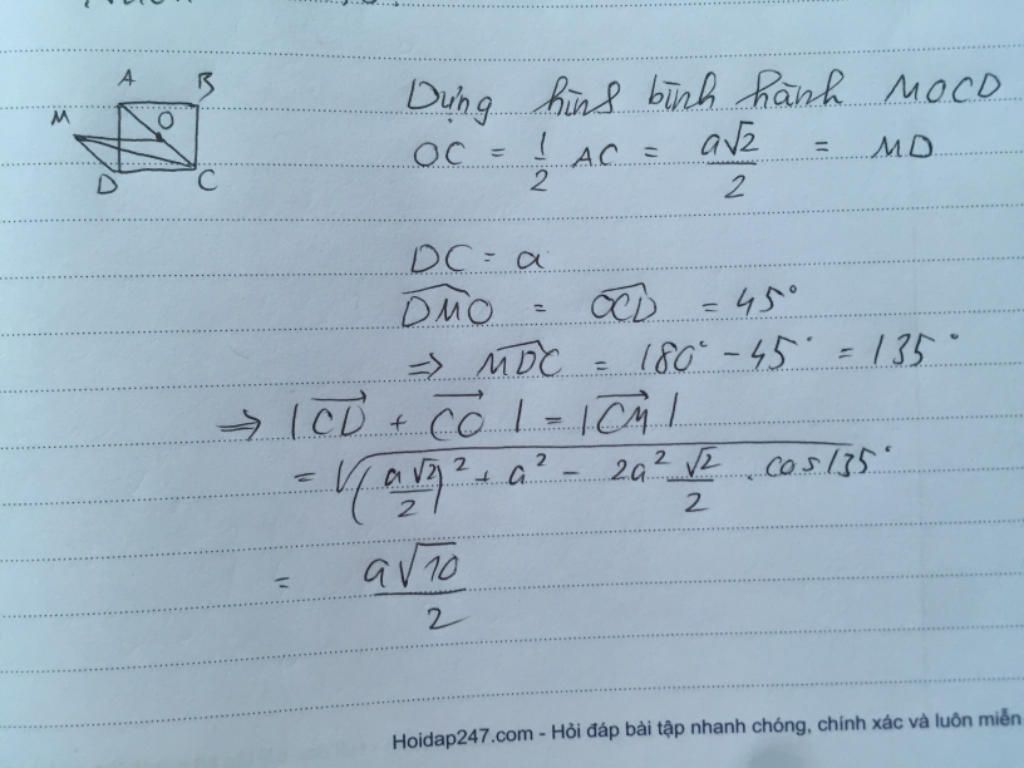 A B
M O
D C
Dựng hình bình hành MOCD
OC = 1/2 AC = a√2/2 = MD
DC = a
\widehat{DMO} = \widehat{OCD} = 45°
⇒ \widehat{MDC} = 180° - 45° = 135°
⇒ |\overrightarrow{CD} + \overrightarrow{CO}| = |\overrightarrow{CM}|
= √((a√2/2)² + a² - 2a² √2/2 . cos135°)
= a√10/2
Hoidap247.com - Hỏi đáp bài tập nhanh chóng, chính xác và luôn miễn